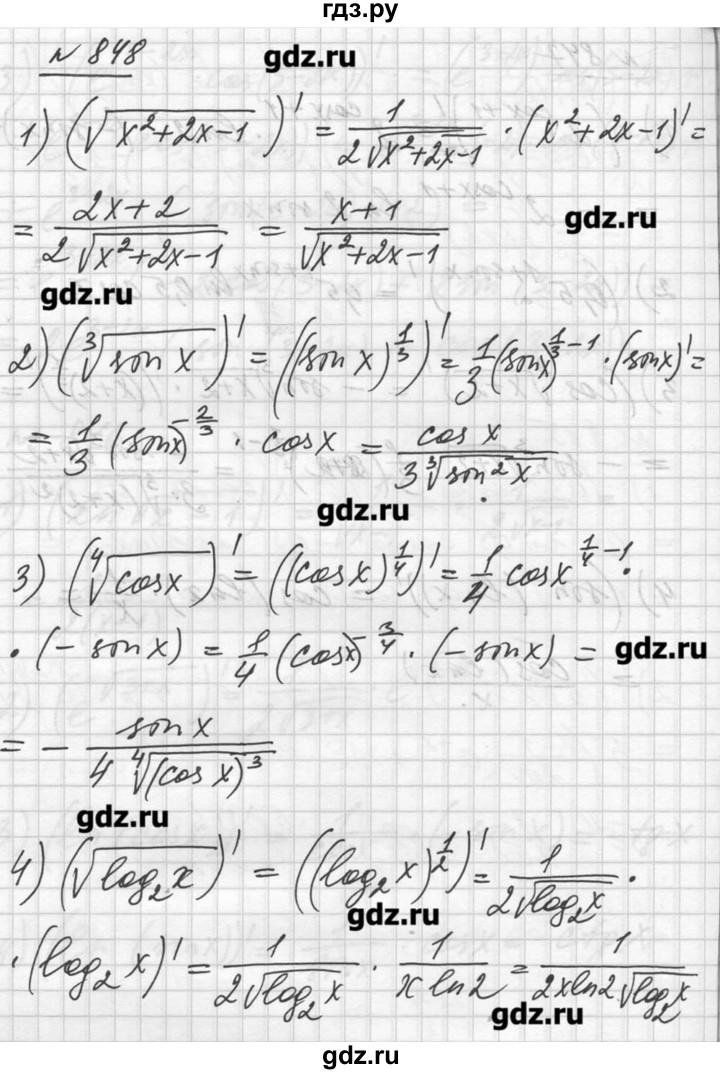 гдз.ру
№ 848
gdz.ru
1) (√(x²+2x-1))' = 1/(2√(x²+2x-1)) · (x²+2x-1)' =
= (2x+2)/(2√(x²+2x-1)) = (x+1)/√(x²+2x-1)
gdz.ru
gdz.ru
2) (∛(sin x))' = ((sin x)^(1/3))' = 1/3 (sin x)^(1/3-1) · (sin x)' =
= 1/3 (sin x)^(-2/3) · cos x = cos x/(3∛(sin² x))
gdz.ru
3) (∜(cos x))' = ((cos x)^(1/4))' = 1/4 cos x^(1/4-1) ·
· (- sin x) = 1/4 (cos x)^(-3/4) · (- sin x) =
gdz.ru
= - sin x/(4∜((cos x)³))
gdz.ru
4) (√(log₂x))' = ((log₂x)^(1/2))' = 1/(2√(log₂x)) ·
gdz.ru
· (log₂x)' = 1/(2√(log₂x)) · 1/(x ln2) = 1/(2x ln2 √(log₂x))
gdz.ru
gdz.ru